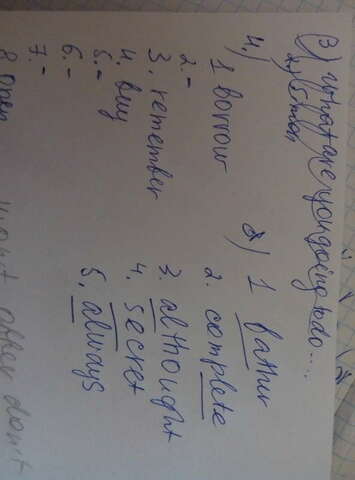 3) what are you going to do....
4.)
1 borrow
2. -
3. remember
4. buy
5. -
6. -
7. -
8 open
*) 1 father
2. complete
3. althought
4. secret
5. always
after don't